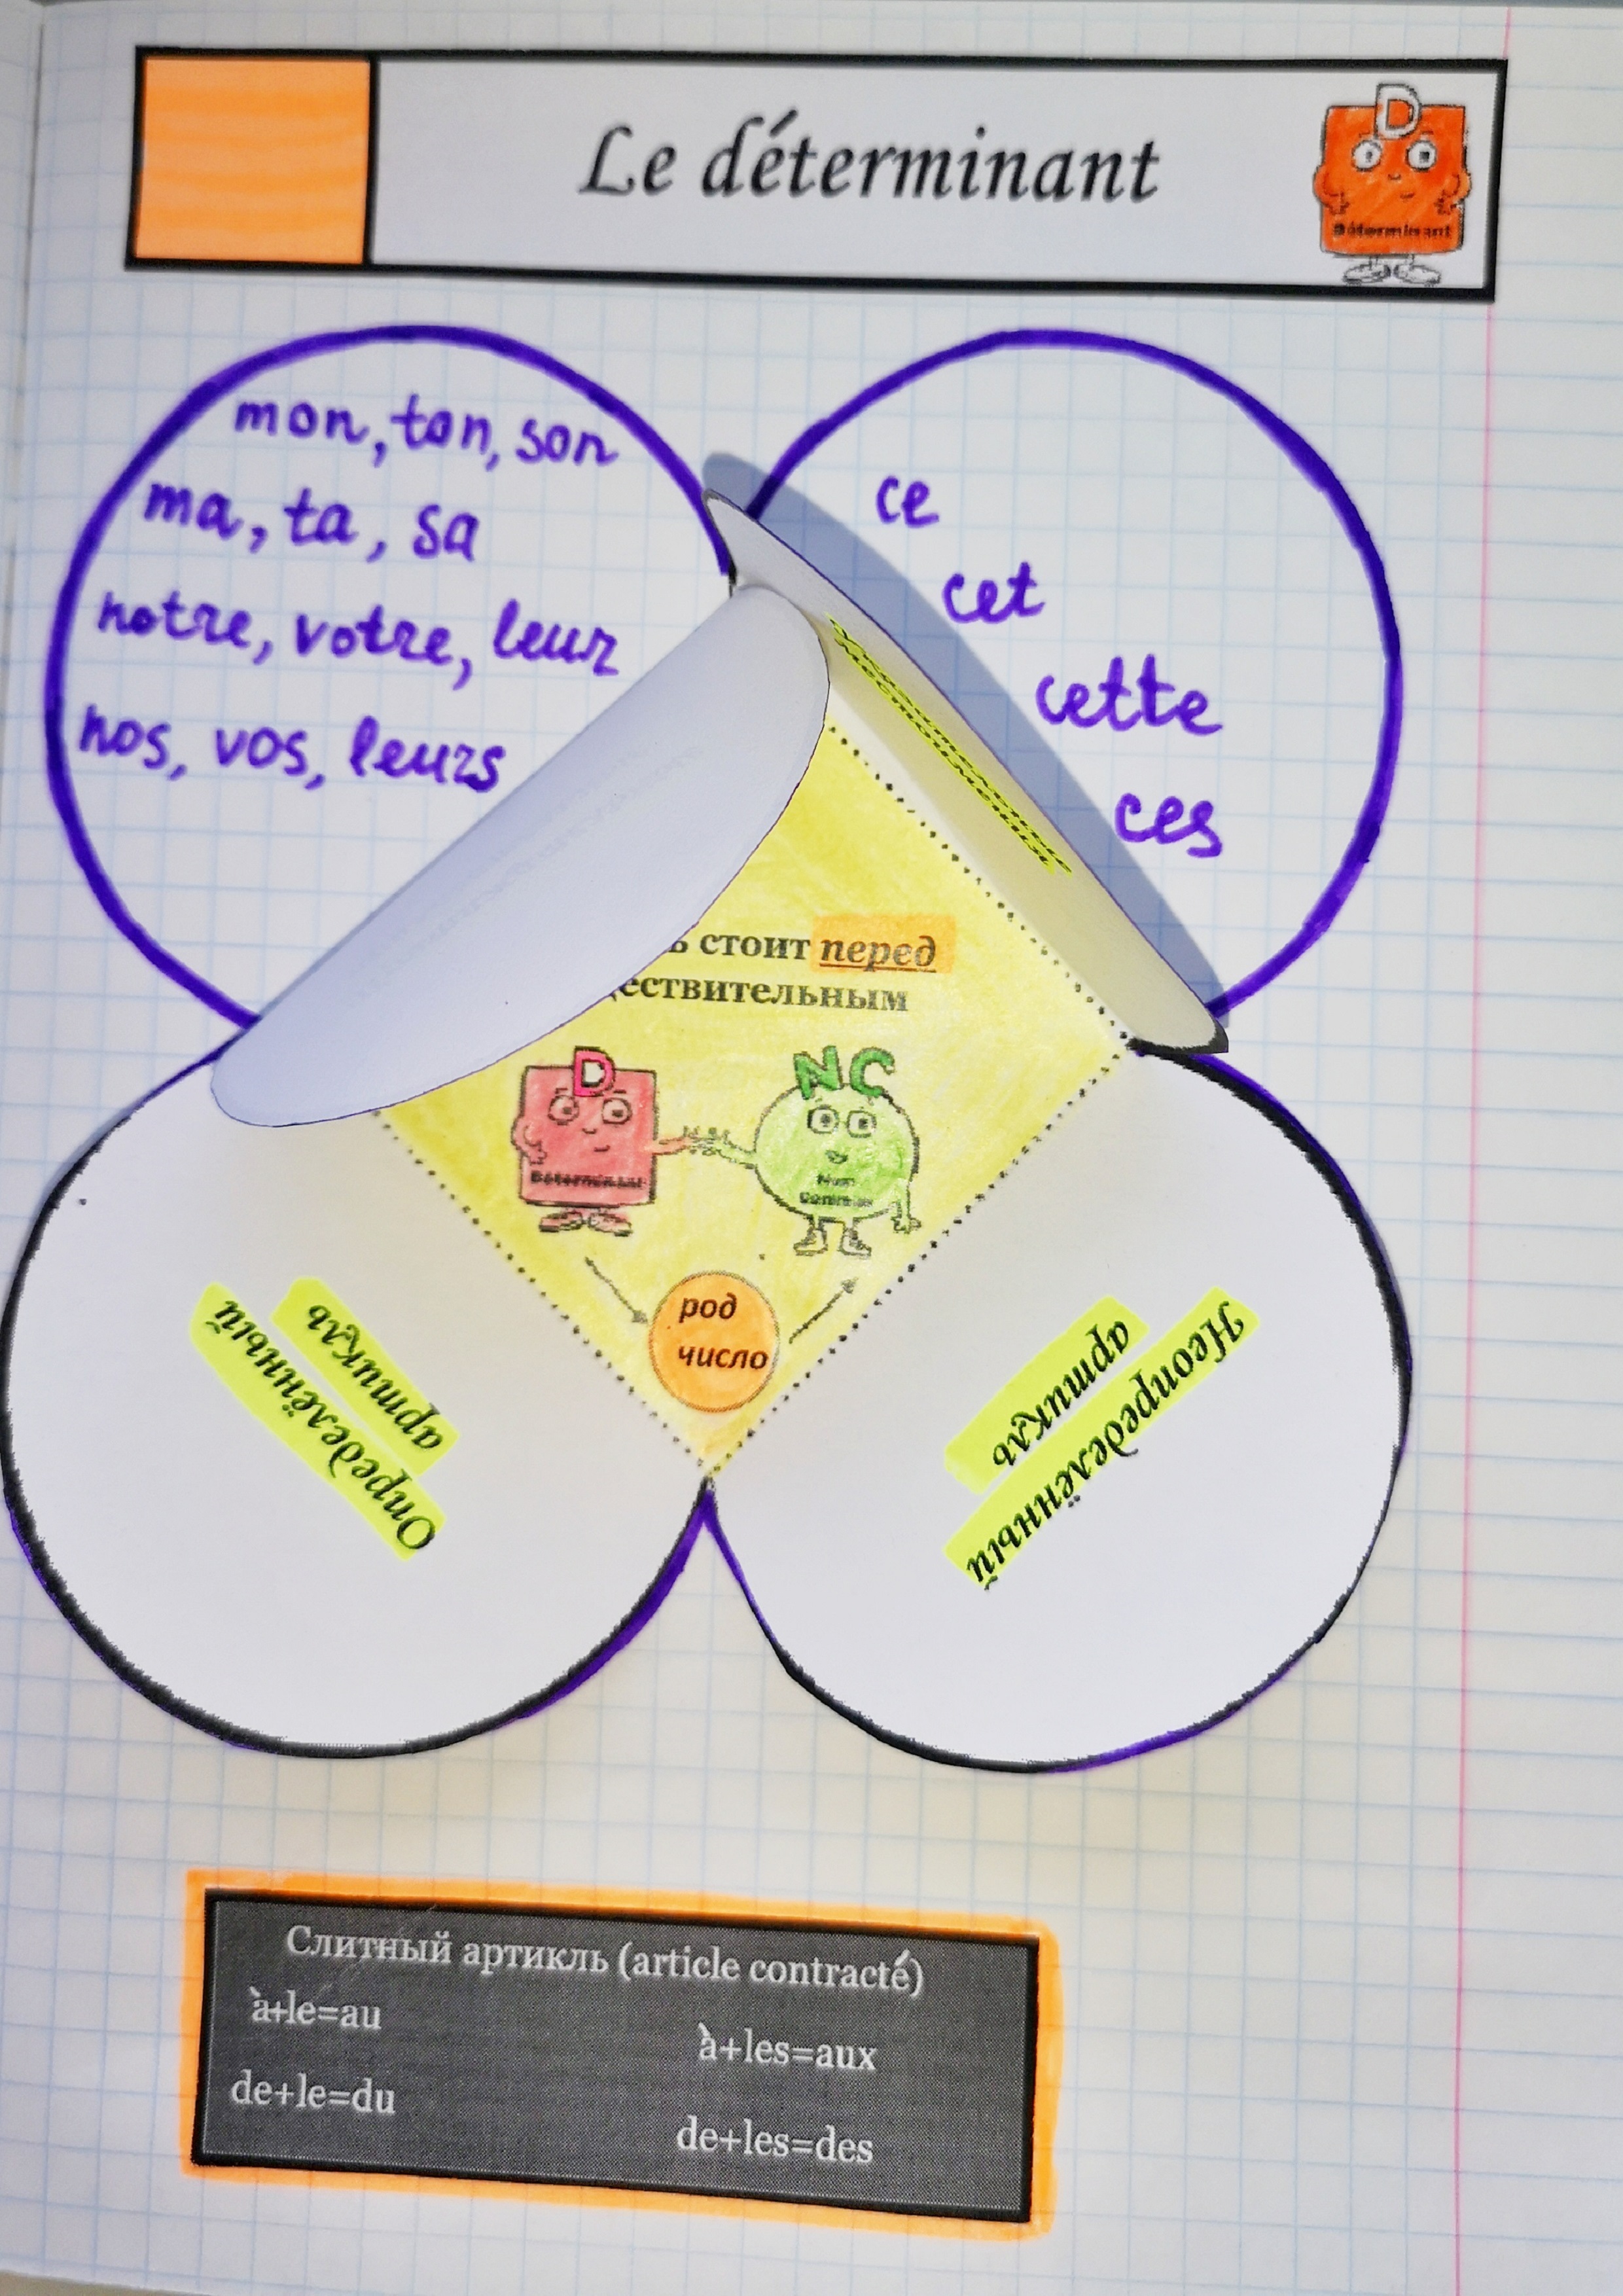 Le déterminant
D
Déterminant
mon, ton, son
ma, ta, sa
notre, votre, leur
nos, vos, leurs
ce
cet
cette
ces
стоит перед
D
NC
Déterminant
Nom
Commun
род
число
Определённый
артикль
Неопределённый
артикль
Слитный артикль (article contracté)
à+le=au
à+les=aux
de+le=du
de+les=des